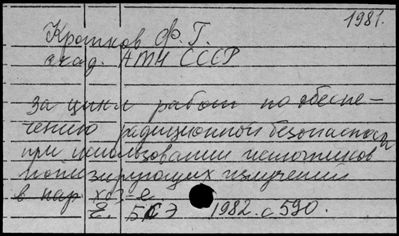 1981.
Кротков Ф. Г.
акад. АМН СССР
за цикл работ по обеспе-
чению радиционной безопасности
при использовании источников
ионизирующих излучений
в нар хоз-е
Е. БСЭ 1982. с 590.